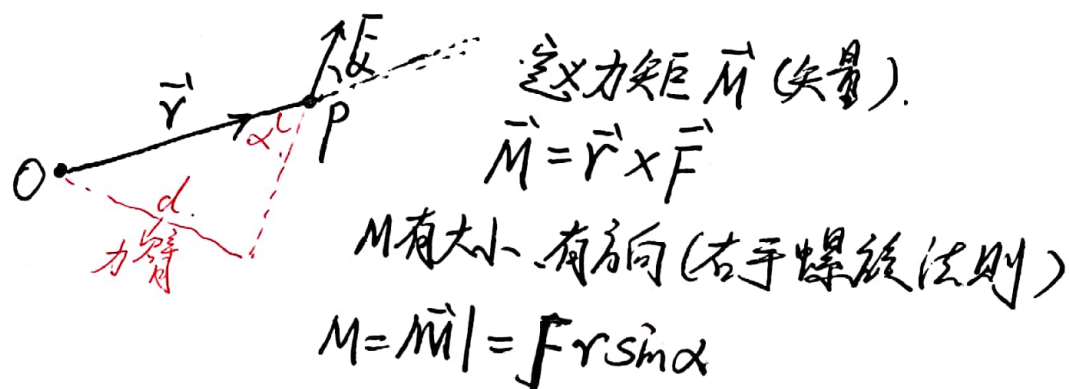 F
α
r
P
α
O
d.
力臂
定义力矩 M (矢量).
M = r × F
M有大小、有方向(右手螺旋法则)
M=|M|=Frsinα